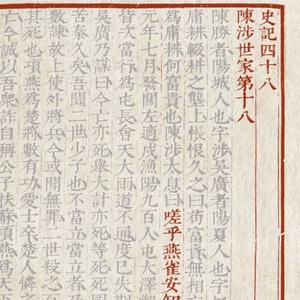 史記四十八
陳涉世家第十八
陳勝者陽城人也字涉吳廣者陽夏人也字
庸耕輟耕之壟上悵恨久之曰苟富貴無相
爲庸耕何富貴也陳涉太息曰嗟乎燕雀安知
元年七月發閭左適戍漁陽九百人屯大澤
皆次當行爲屯長會天大雨道不通度已失
吳廣乃謀曰今亡亦死舉大計亦死等死死
苦秦久矣吾聞二世少子也不當立當立者
數諫故上使外將兵今或聞無罪二世殺之
其死也項燕爲楚將數有功愛士卒楚人憐之
亡今誠以吾衆詐自稱公子扶蘇項燕爲天